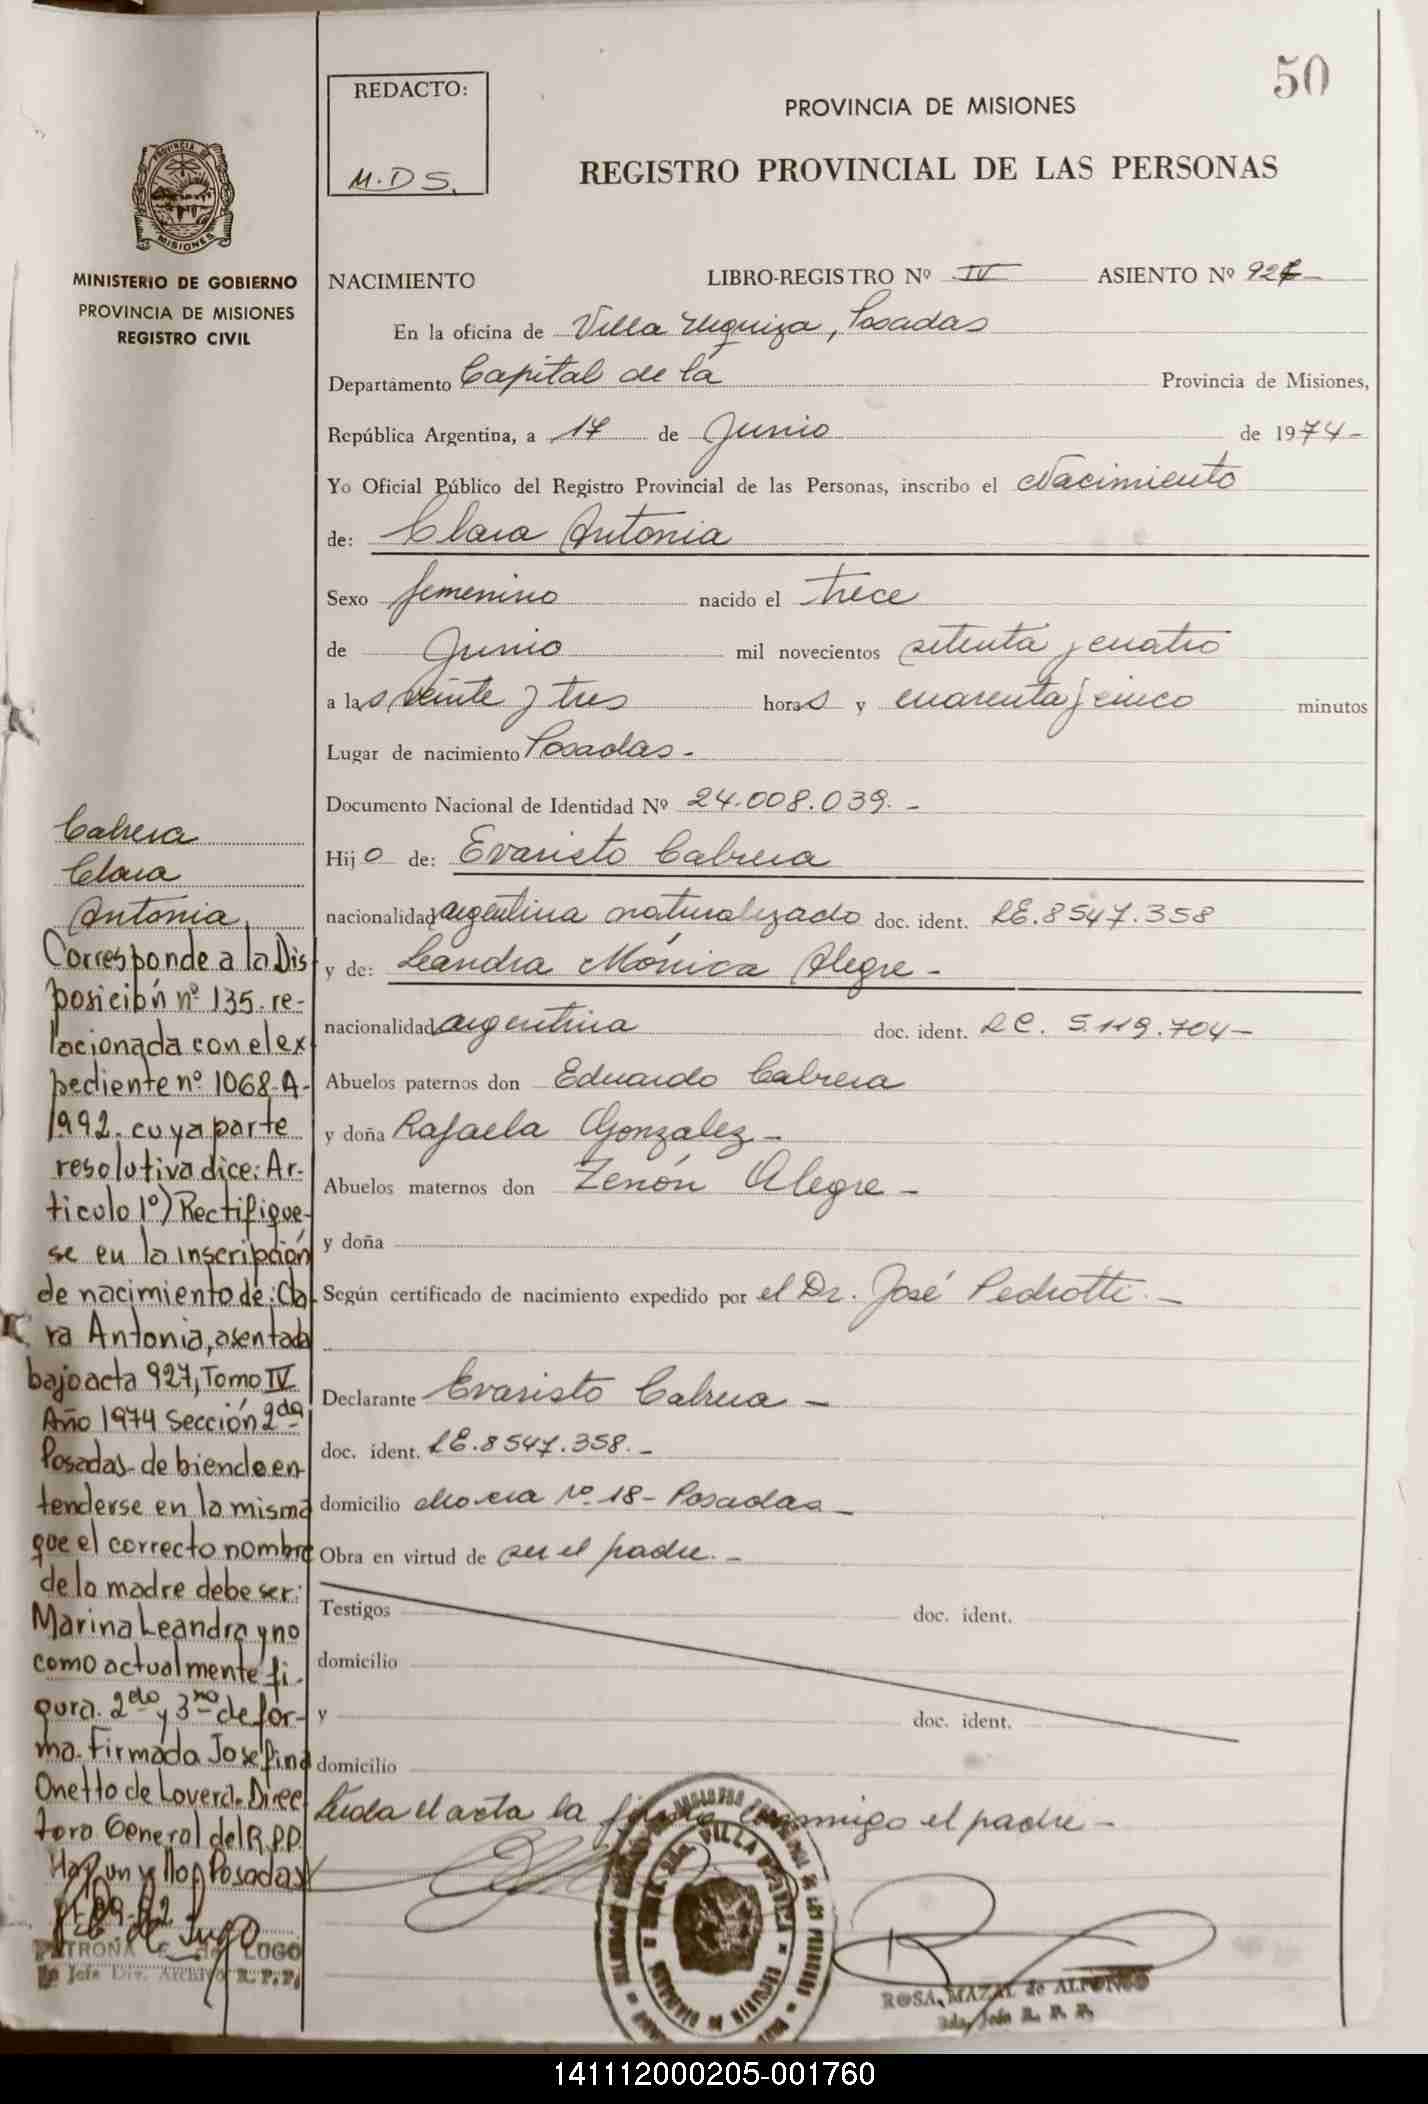 50
REDACTO:
M.D S.
PROVINCIA DE MISIONES
REGISTRO PROVINCIAL DE LAS PERSONAS
PROVINCIA DE
MISIONES
MINISTERIO DE GOBIERNO
PROVINCIA DE MISIONES
REGISTRO CIVIL
NACIMIENTO LIBRO-REGISTRO Nº IV ASIENTO Nº 927-
En la oficina de Villa Urquiza, Posadas
Departamento Capital de la Provincia de Misiones,
República Argentina, a 17 de Junio de 1974-
Yo Oficial Público del Registro Provincial de las Personas, inscribo el Nacimiento
de: Clara Antonia
Sexo femenino nacido el trece
de Junio mil novecientos setenta y cuatro
a las veinte y tres horas y cuarenta y cinco minutos
Lugar de nacimiento Posadas-
Documento Nacional de Identidad Nº 24.008.039.-
Hijo de: Evaristo Cabrera
nacionalidad argentina naturalizado doc. ident. LE.8547.358
y de: Leandra Mónica Alegre-
nacionalidad argentina doc. ident. LC. 5.119.704-
Abuelos paternos don Eduardo Cabrera
y doña Rafaela Gonzalez-
Abuelos maternos don Zenón Alegre-
y doña
Según certificado de nacimiento expedido por el Dr. José Pedrotti.-
Declarante Evaristo Cabrera-
doc. ident. LE.8547.358.-
domicilio Nº 18- Posadas-
Obra en virtud de ser el padre.-
Testigos doc. ident.
domicilio
y doc. ident.
domicilio
Leída el acta la firma conmigo el padre-
Cabrera
Clara
Antonia
Corresponde a la Dis
posición nº 135. re-
lacionada con el ex
pediente nº 1068-A-
1992. cuya parte
resolutiva dice: Ar-
ticulo 1º) Rectifique-
se en la inscripción
de nacimiento de: Cla
ra Antonia, asentada
bajo acta 927, Tomo IV
Año 1974 Sección 2da
Posadas- debiendo en
tenderse en la misma
que el correcto nombre
de la madre debe ser:
Marina Leandra y no
como actualmente fi-
gura. 2do y 3ro de for-
ma. Firmada Josefina
Onetto de Lovera- Direc
tora General del R.P.P.
Hay un sello Posadas
PETRONA E. de LUGO
Jefe Div. Archivo R.P.P.
VILLA URQUIZA
ROSA MAZAL de ALFONSO
2da. Jefe R. P. P.
141112000205-001760